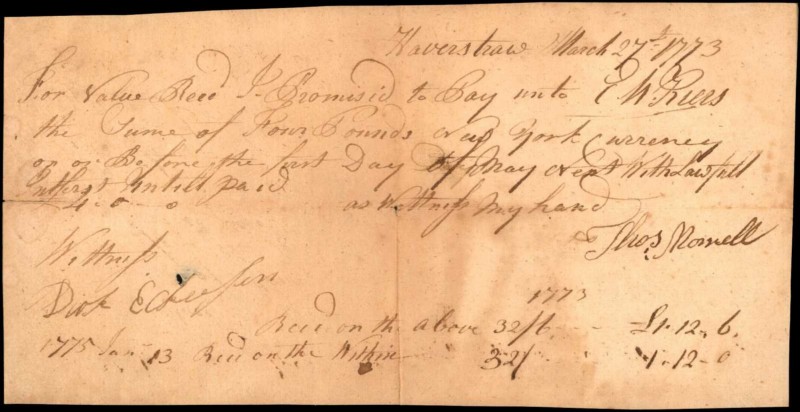 Haverstraw March 27th 1773
For Value Recd I Promis'd to Pay unto
the Sume of Four Pounds new York Currency
on or Before the first Day of May next With Lawfull
Intherst Untill paid
4-0-0 as Wittness My hand
Thos
Wittness
Dirk
1773
Recd on the above 32/6 - - £1-12-6
1775 Jan 13 Recd on the Within 32/ 1-12-0